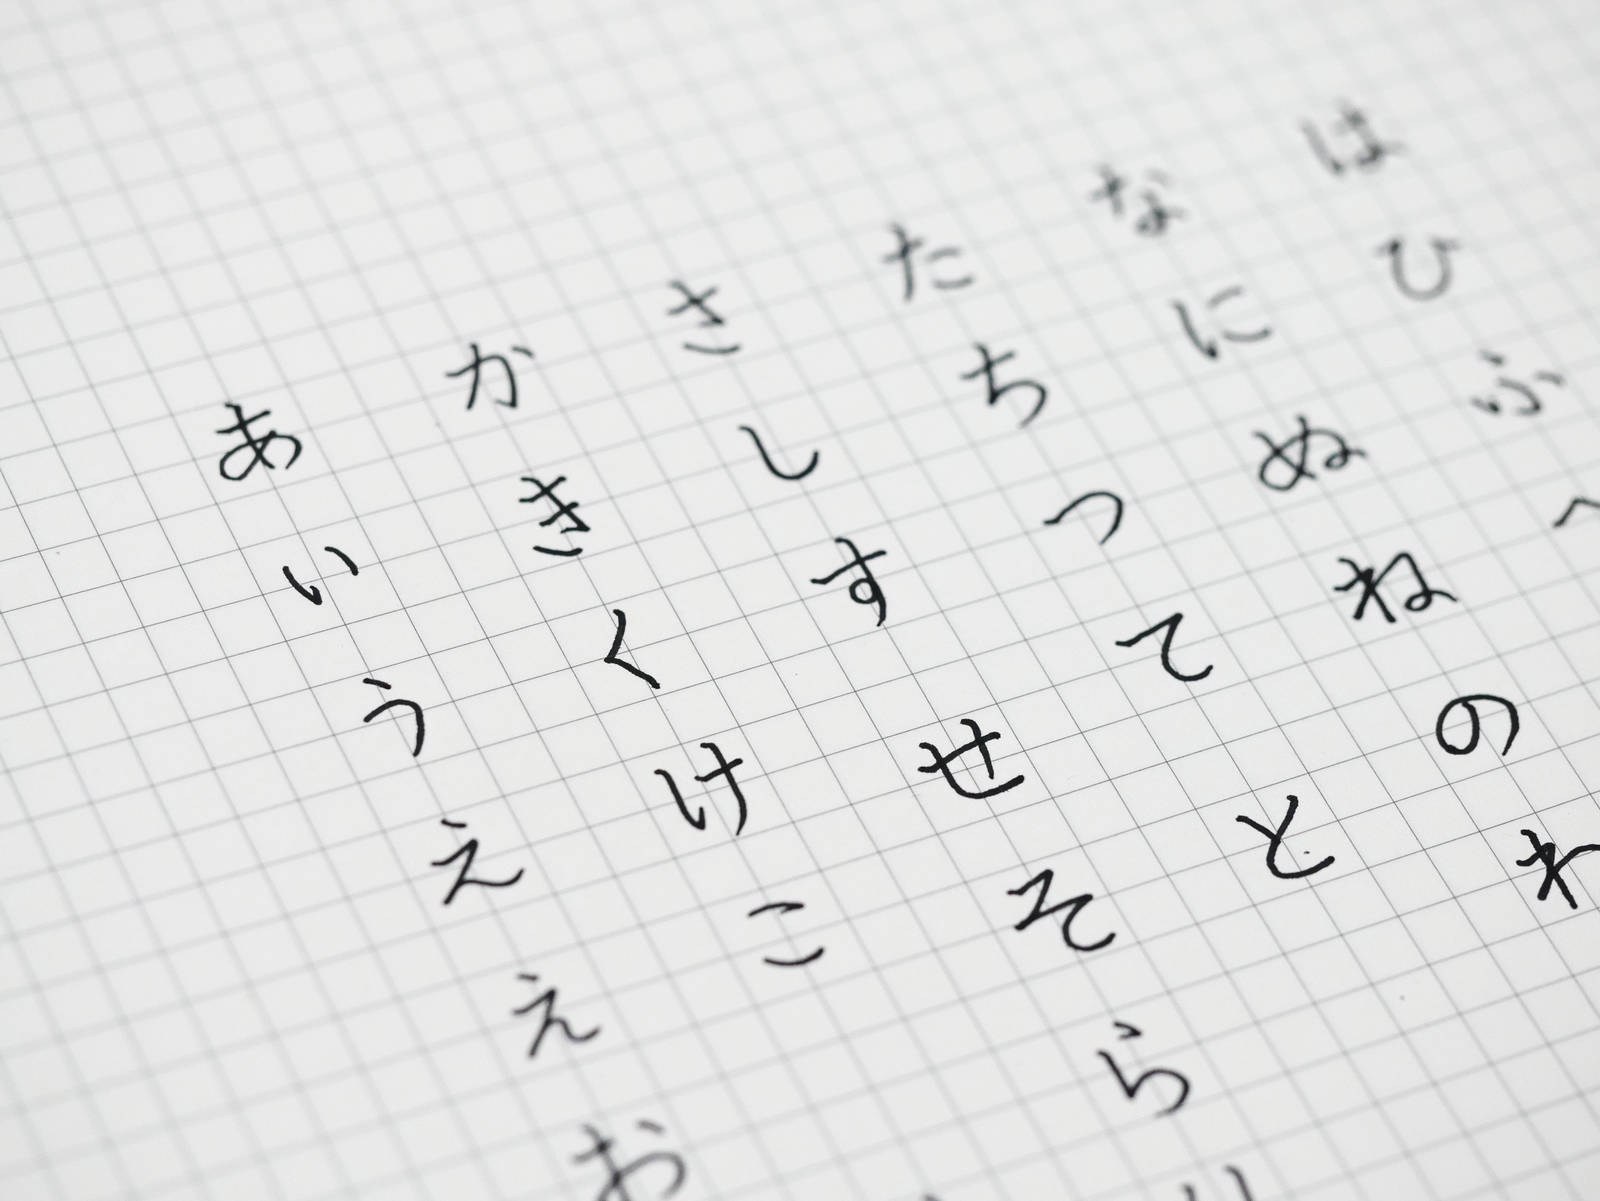 あいうええお
かきくけこ
さしすせそら
たちつてと
なにぬねの
はひふへ